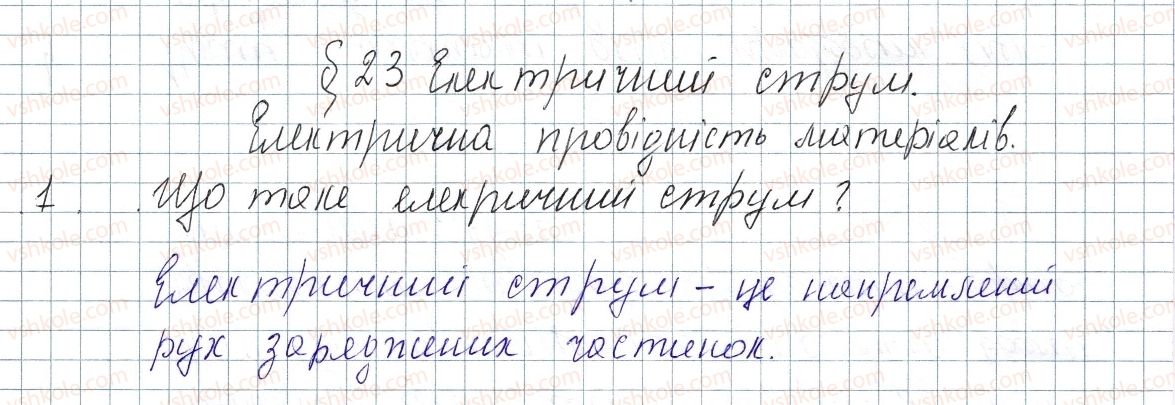 § 23 Електричний струм.
Електрична провідність матеріалів.
1. Що таке елекричний струм?
Електричний струм – це напрямлений
рух заряджених частинок.